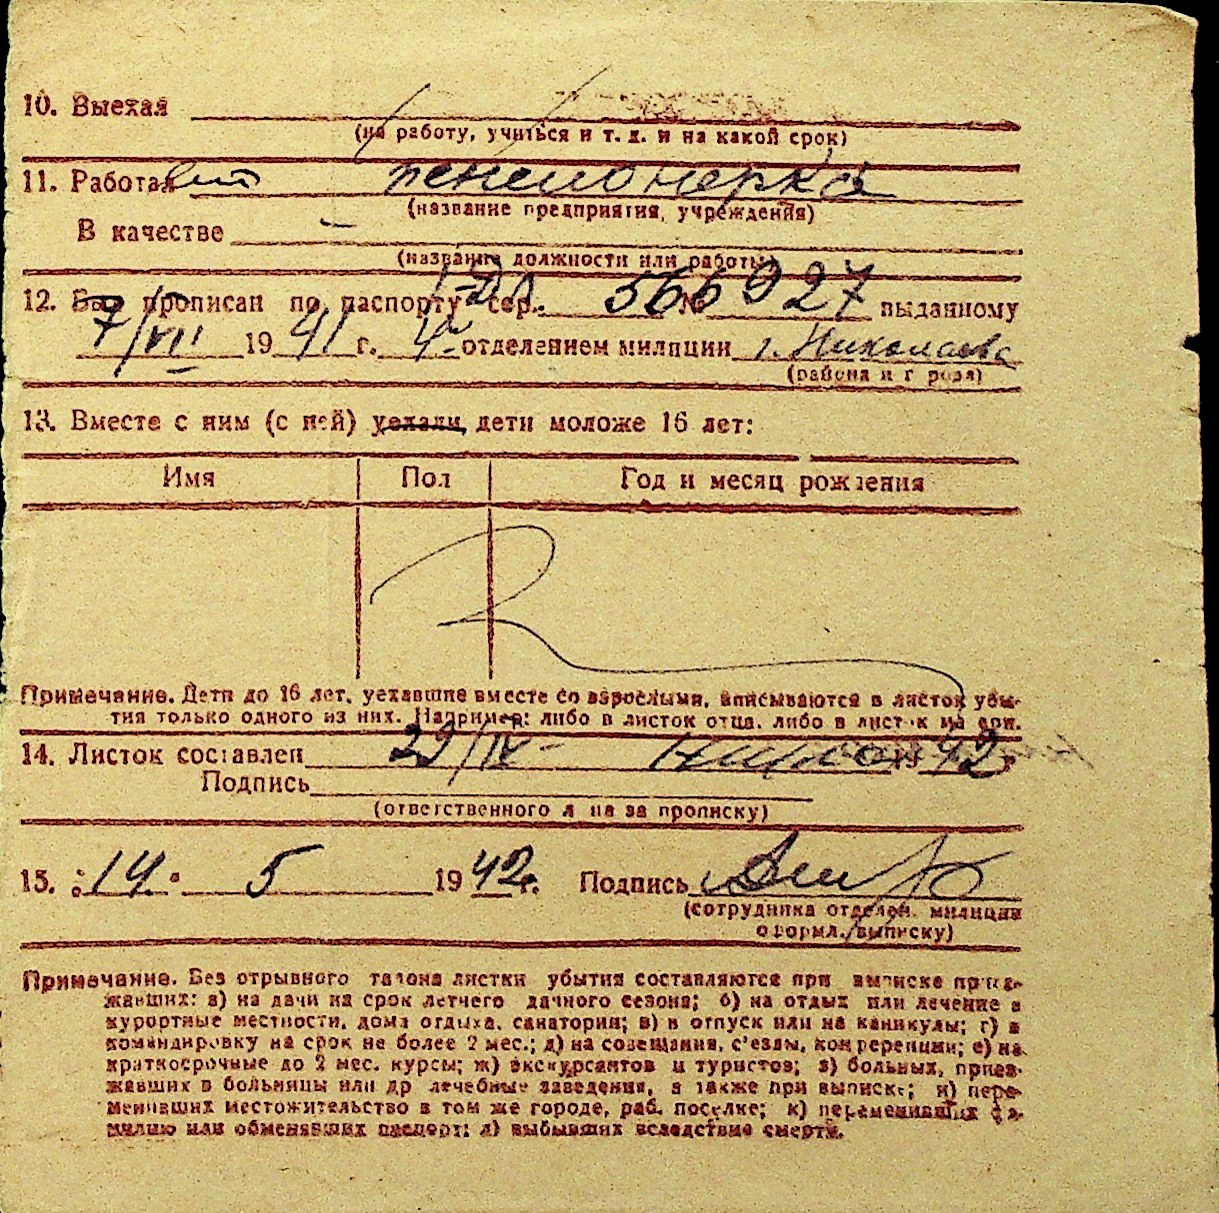 10. Выехал
(на работу, учиться и т. д. и на какой срок)
11. Работал пенсионерка
(название предприятия, учреждения)
В качестве —
(название должности или работы)
12. Был прописан по паспорту сер. № 566927 выданному
7/VII 1941 г. 4 отделением милиции г. Николаева
(района и города)
13. Вместе с ним (с ней) уехали дети моложе 16 лет:
Имя Пол Год и месяц рождения
Примечание. Дети до 16 лет, уехавшие вместе со взрослыми, вписываются в листок убы-
тия только одного из них. Например: либо в листок отца, либо в листок матери.
14. Листок составлен 29/IV- 1942 г.
Подпись
(ответственного лица за прописку)
15. "14" 5 1942г. Подпись
(сотрудника отделен. милиции
оформл. выписку)
Примечание. Без отрывного талона листки убытия составляются при выписке приез-
жавших: а) на дачи на срок летнего дачного сезона; б) на отдых или лечение в
курортные местности, дома отдыха, санатории; в) в отпуск или на каникулы; г) в
командировку на срок не более 2 мес.; д) на совещания, с'езды, конференции; е) на
краткосрочные до 2 мес. курсы; ж) экскурсантов и туристов; з) больных, приез-
жавших в больницы или др лечебные заведения, а также при выписке; и) пере-
менивших местожительство в том же городе, раб. поселке; к) переменивших фа-
милию или обменявших паспорт; л) выбывших вследствие смерти.